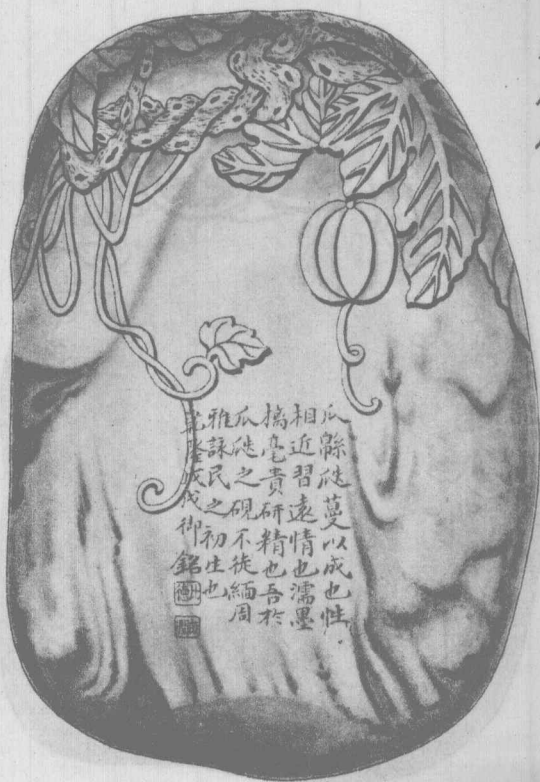 瓜緜瓞蔓以成也性
相近習遠情也濡墨
摛毫貴研精也吾於
瓜瓞之硯不徒緬周
雅詠民之初生也
乾隆戊戌御銘